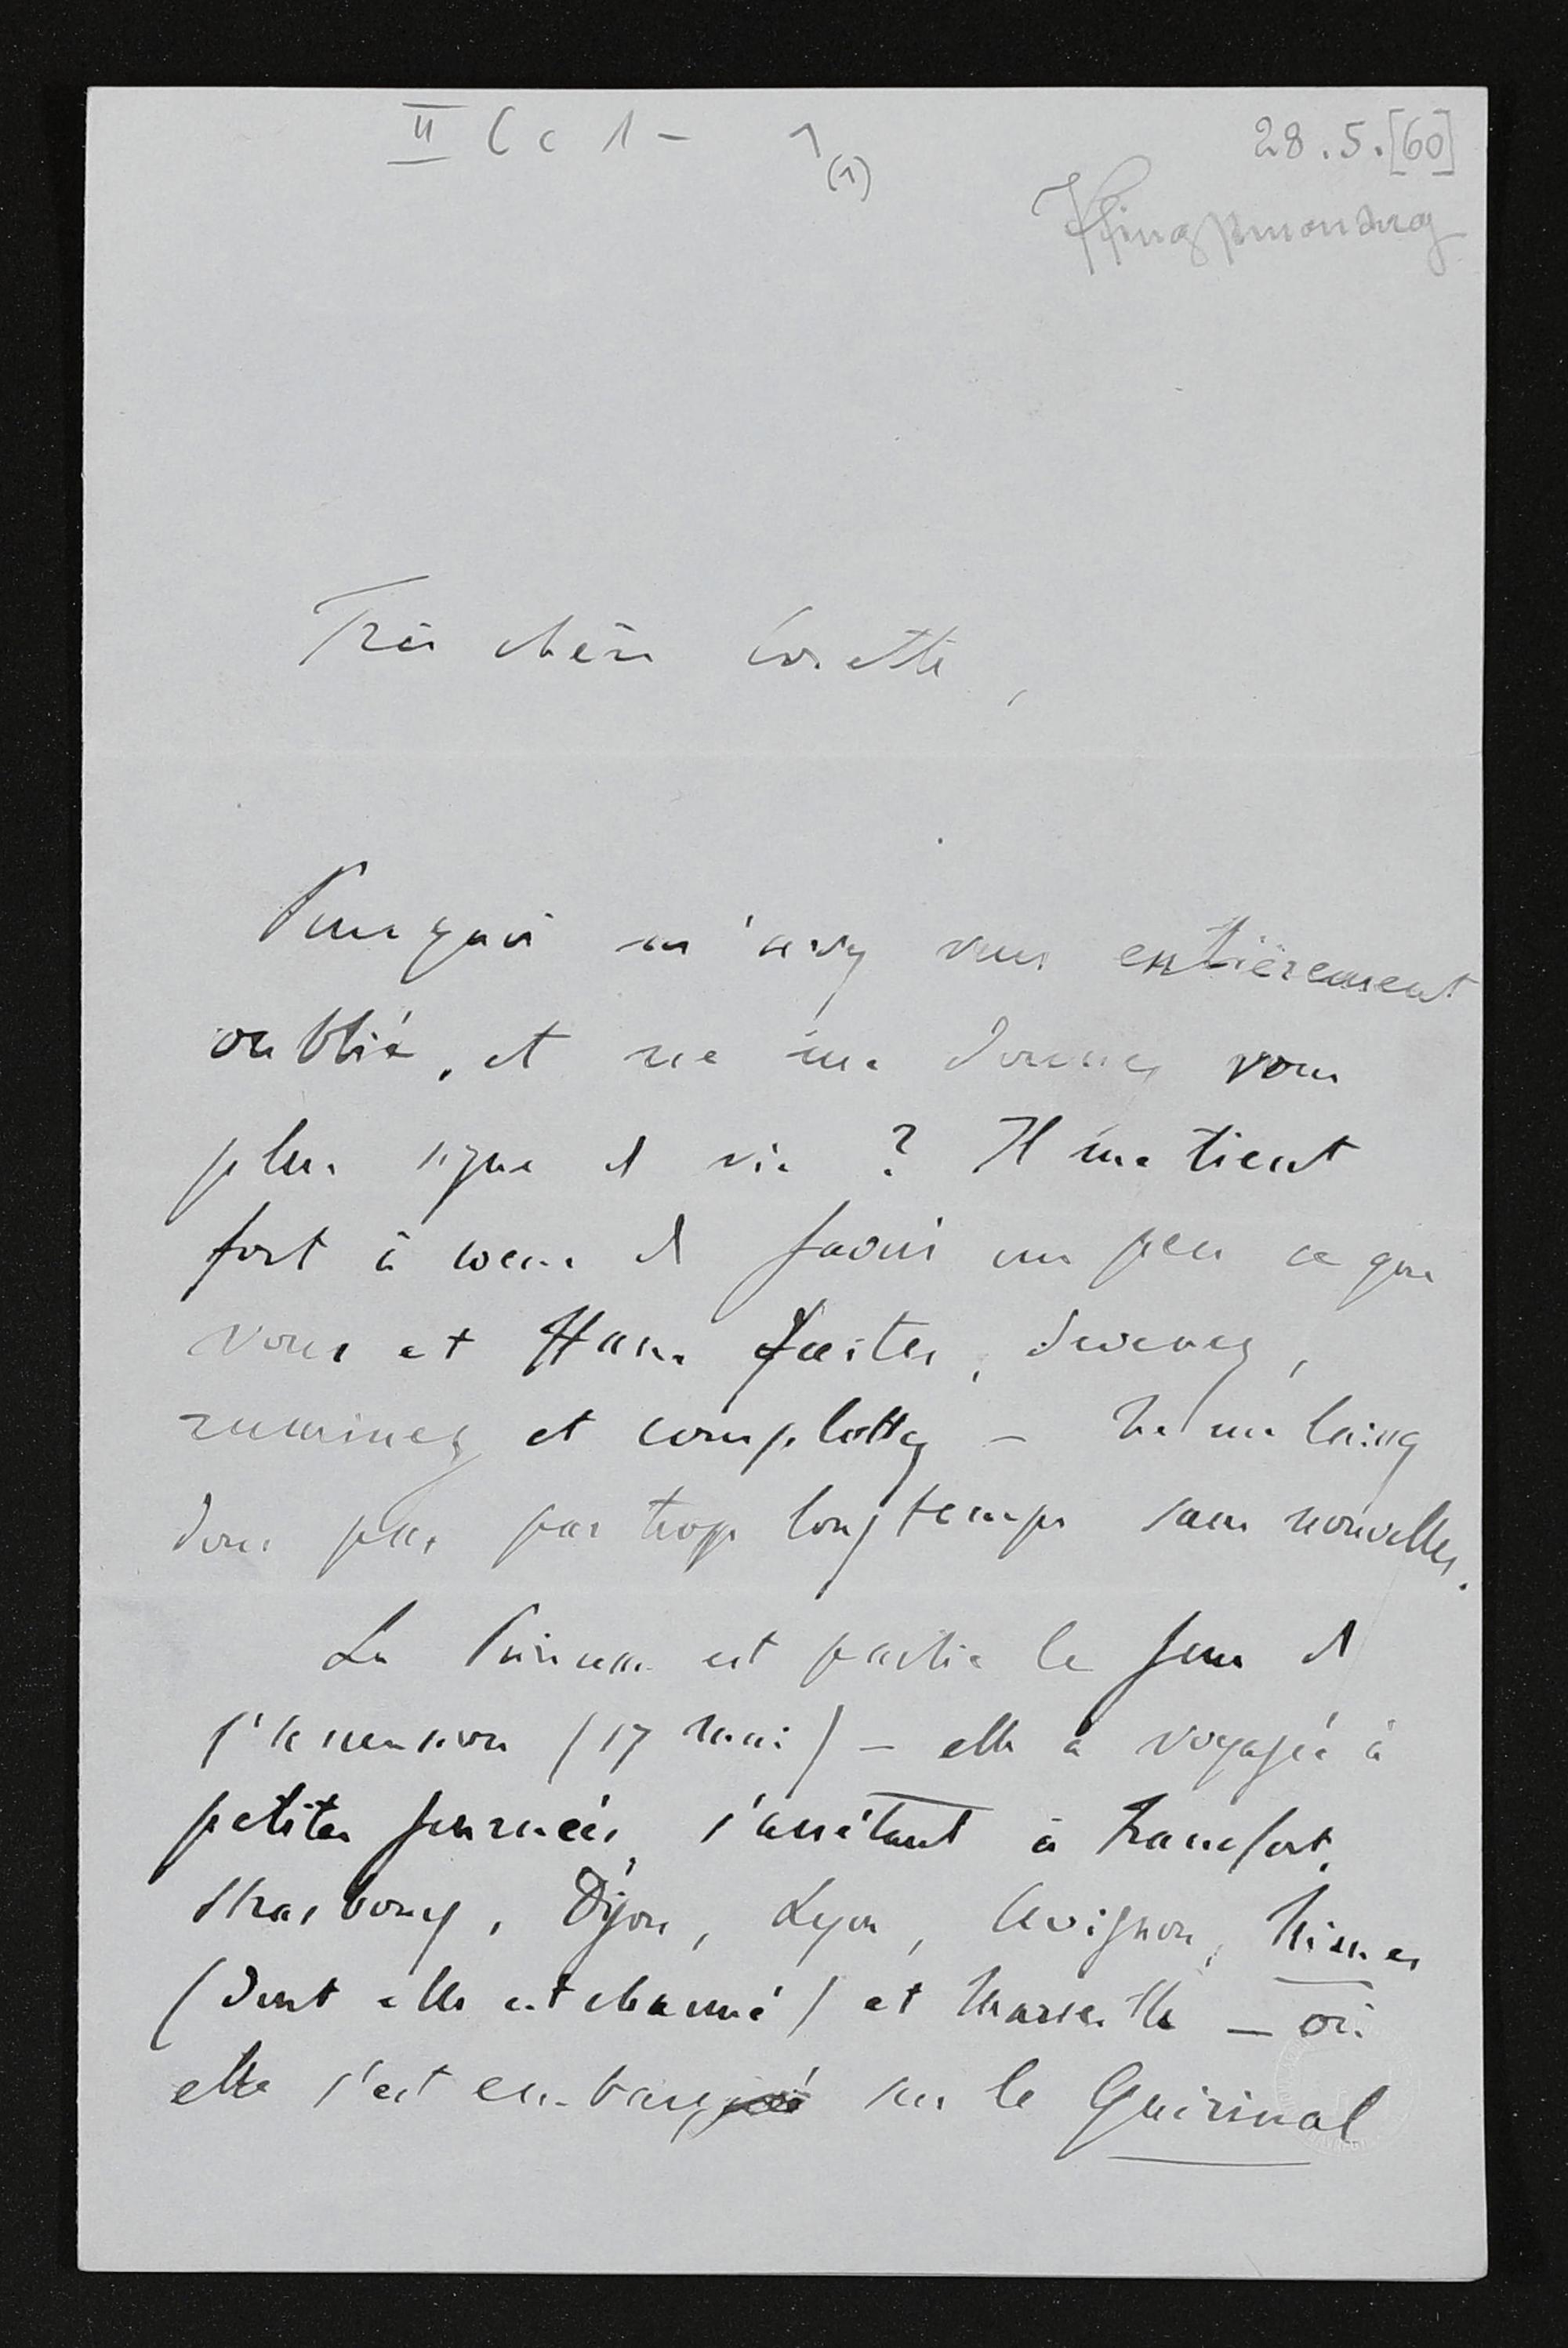 II C c 1 – 1
(1)
28.5.[60]
Pfingstmontag
Très chère Cosette,
Pourquoi m'avez vous entièrement
oublié, et ne me donnez vous
plus signe de vie ? Il me tient
fort à coeur de savoir un peu ce que
vous et Hans faites, devenez,
ruminez et complottez – Ne me laissez
donc pas par trop longtemps sans nouvelles.
La Princesse est partie le jour de
l'Ascension (17 Mai) – elle a voyagé à
petites journées, s'arrêtant à Francfort,
Strasbourg, Dijon, Lyon, Avignon, Nimes
(dont elle est charmée) et Marseille – où
elle s'est embarquée sur le Quirinal